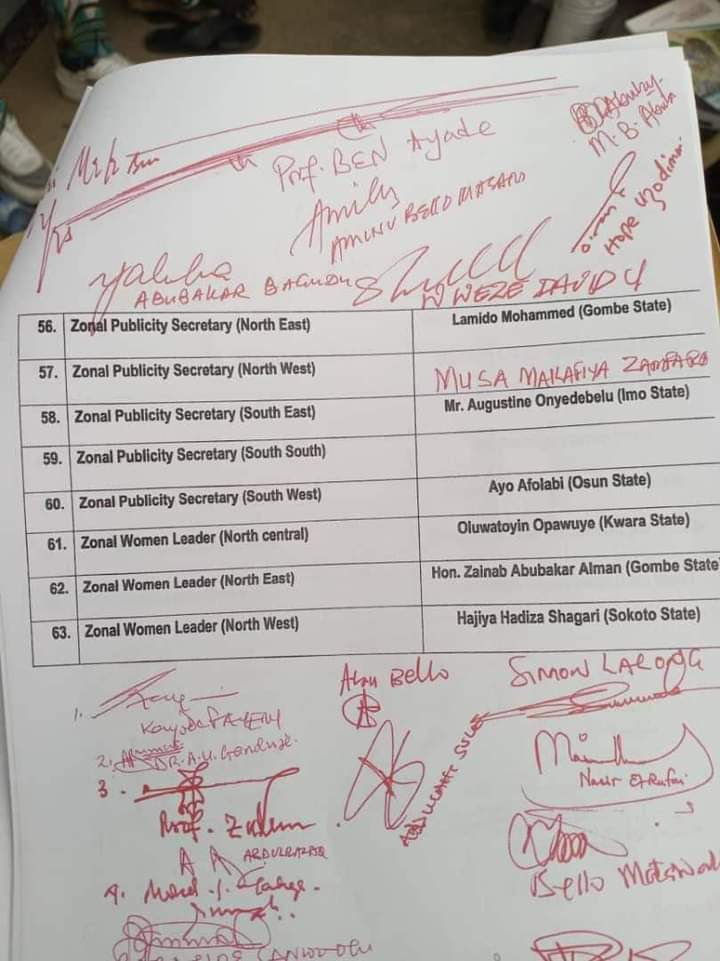 Prof. BEN Ayade
M. B. Abubakar
AMINU BELLO MASARI
Hope Uzodimma
Yahaya
ABUBAKAR BAGUDU
NWEZE DAVID U
56. Zonal Publicity Secretary (North East) Lamido Mohammed (Gombe State)
57. Zonal Publicity Secretary (North West) MUSA MAKAFIYA ZAMFARA
58. Zonal Publicity Secretary (South East) Mr. Augustine Onyedebelu (Imo State)
59. Zonal Publicity Secretary (South South)
60. Zonal Publicity Secretary (South West) Ayo Afolabi (Osun State)
61. Zonal Women Leader (North central) Oluwatoyin Opawuye (Kwara State)
62. Zonal Women Leader (North East) Hon. Zainab Abubakar Alman (Gombe State
63. Zonal Women Leader (North West) Hajiya Hadiza Shagari (Sokoto State)
Bello
SIMON LALONG
1.
Kayode FAYEMI
2.
DR. A. U. Ganduje
ABDULLAHI SULE
Nasir El-Rufai
3.
Prof. Zulum
AA ABDULRAZAQ
4.
Bello Matawal
SANWOOLU